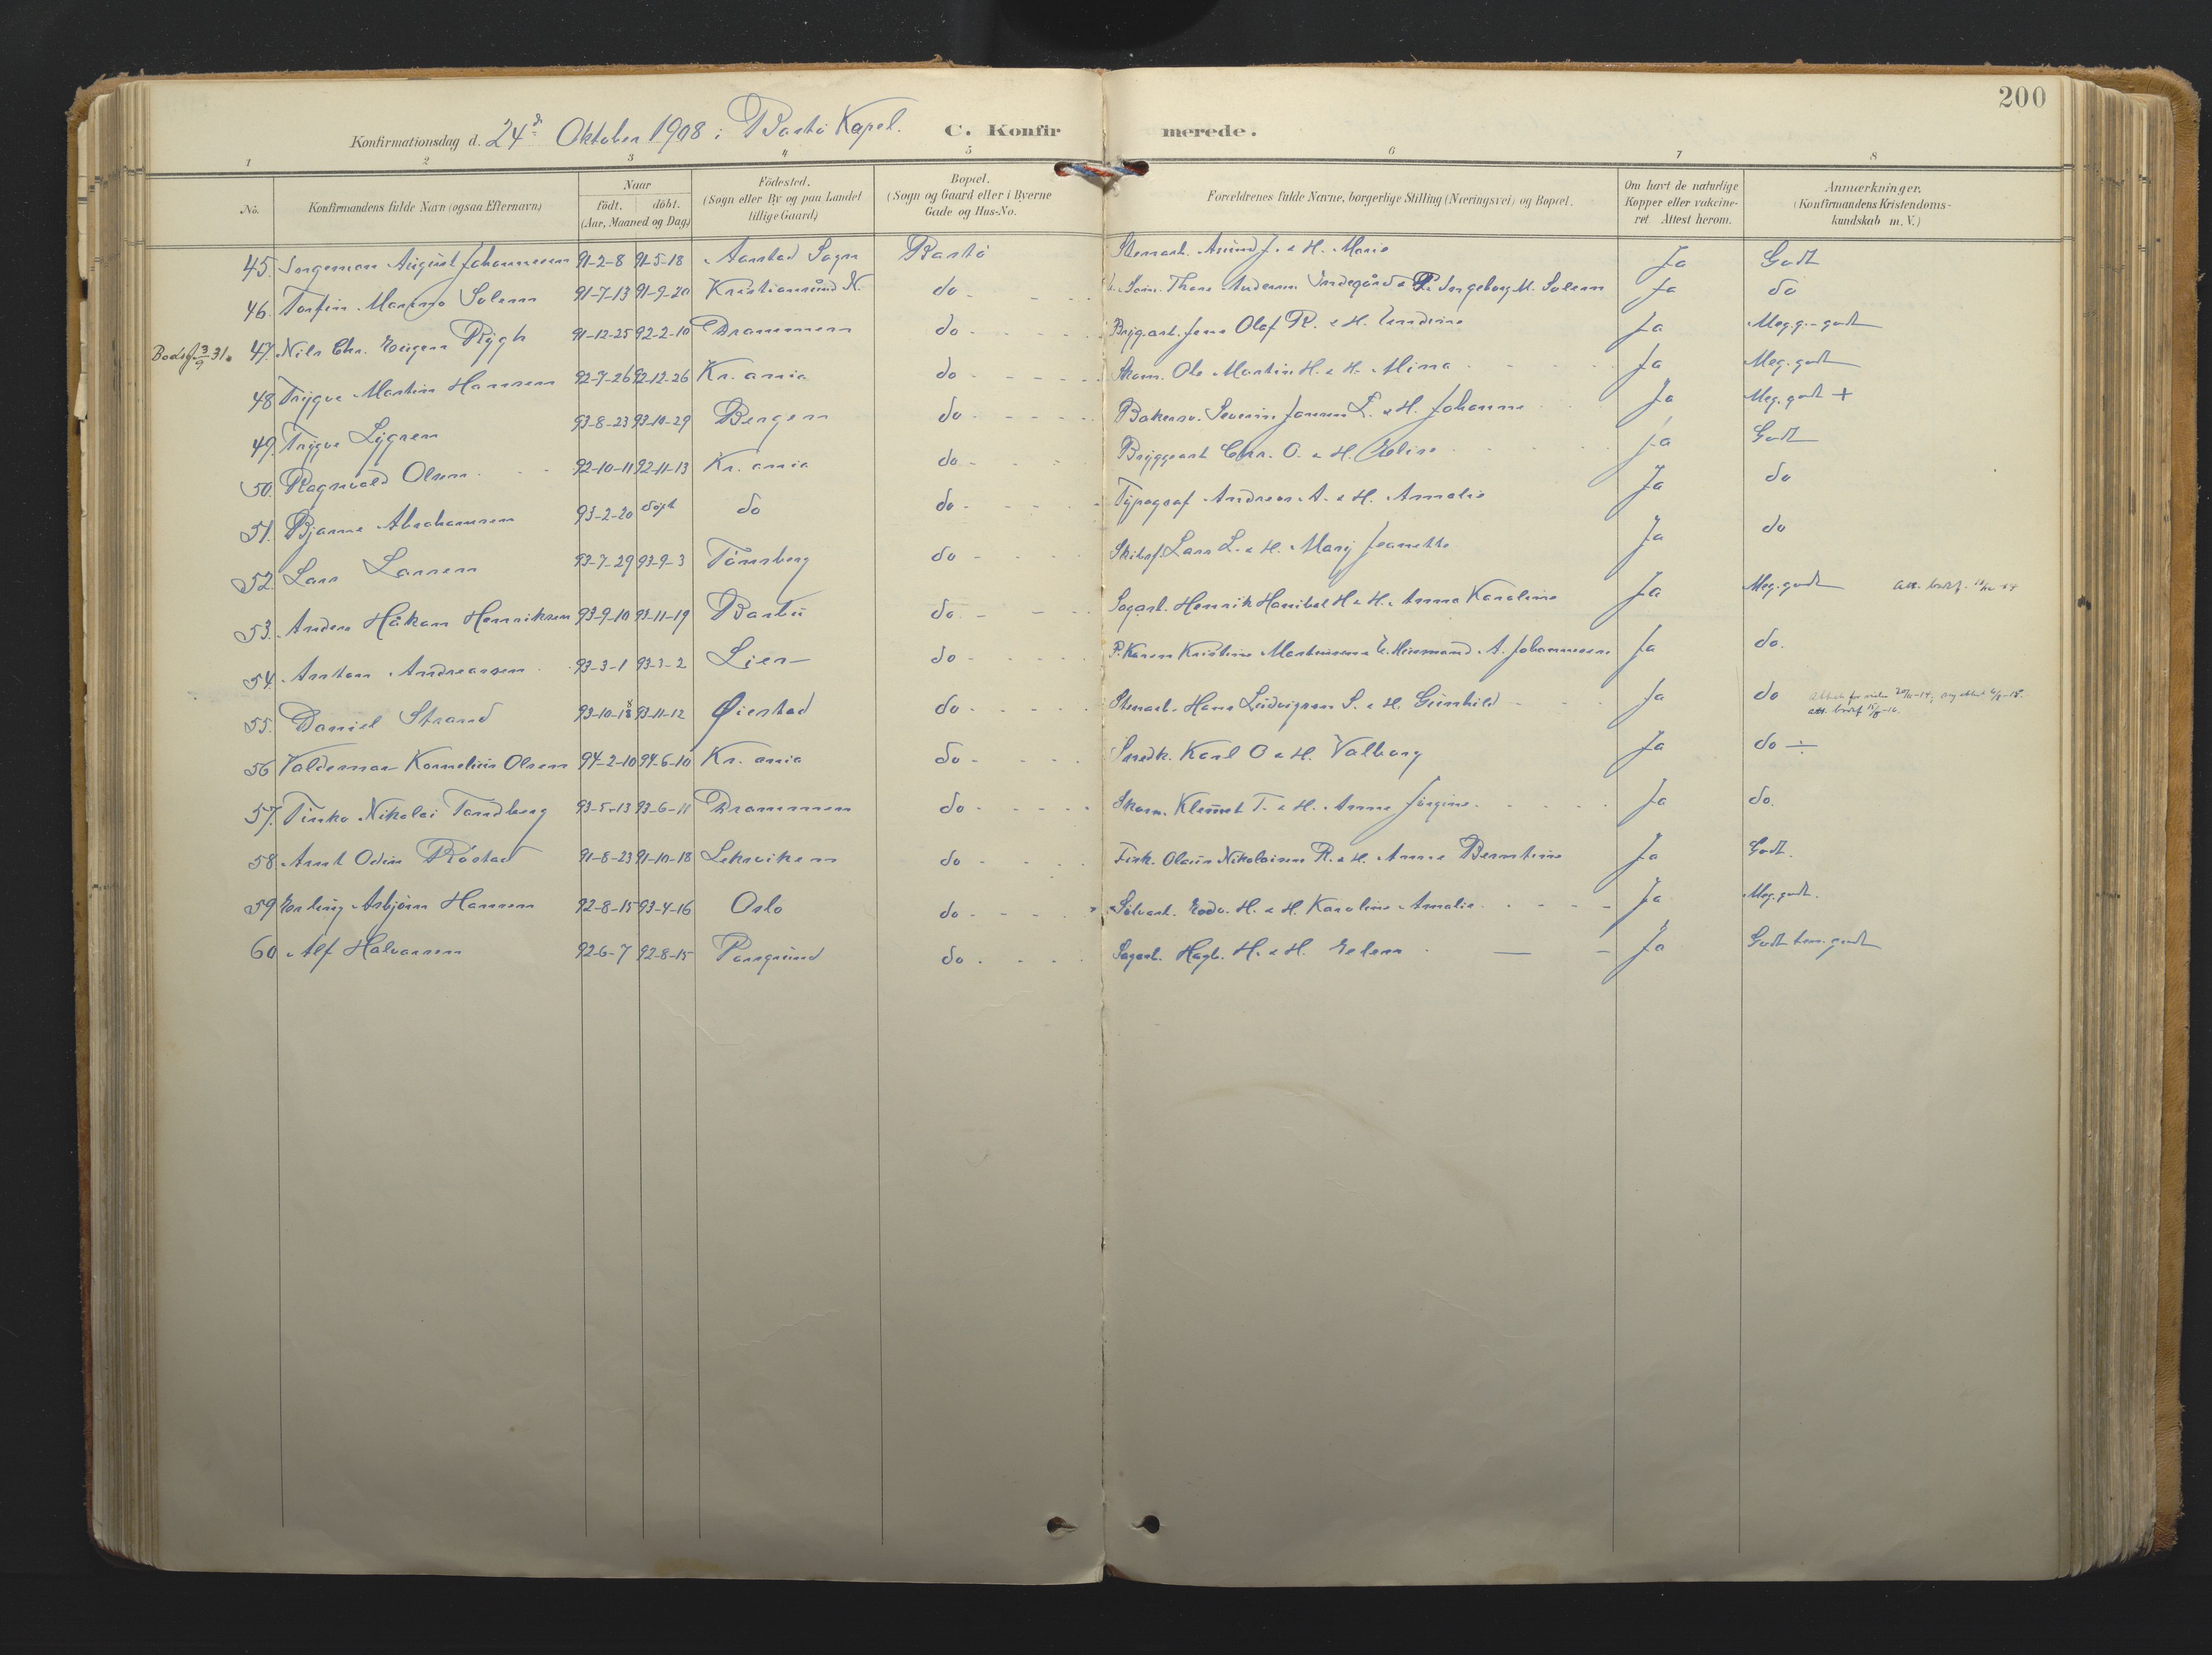 200
Konfirmationsdag d. 24de Oktober 1908 i Bastö Kapel. C. Konfirmerede.
1 2 3 4 5 6 7 8
No. Konfirmandens fulde Navn (ogsaa Efternavn) Naar födt. döbt. (Aar, Maaned og Dag) Födested. (Sogn eller By og paa Landet tillige Gaard) Bopæl. (Sogn og Gaard eller i Byerne Gade og Hus-No. Forældrenes fulde Navne, borgerlige Stilling (Næringsvei) og Bopæl. Om havt de naturlige Kopper eller vakcineret Attest herom. Anmærkninger. (Konfirmandens Kristendomskundskab m. V.)
45. Jorgeman August Johannesen 91-2-8 91-5-18 Aarstad Sogn Bastö Stenarb. Amund J. & H. Marie Ja Godt
46. Torfin Marino Solem 91-7-13 91-9-20 Kristiansund N. do Thore Andersen Indegård & P. Ingeborg M. Solem Ja do
47. Nils Chr. Eugen Rygh 91-12-25 92-2-10 Drammen do Brygarb. Jens Olaf R. & H. Ja Meg. g.-godt
48 Trygve Martin Hansen 92-7-26 92-12-26 Kr.ania do Skom. Ole Martin H. & H. Mina Ja Meg. godt
49. Trygve Lygren 93-8-23 93-10-29 Bergen do Bakersv. Severin Jansen L. & H. Johanne Ja Meg. godt +
50. Ragnvald Olsen 92-10-11 92-11-13 Kr.ania do Bryggearb Chr. O. & H. Elise Ja Godt
51. Bjarne Abrahamsen 93-2-20 döpt do do Typograf Andreas A. & H. Amalie Ja do
52. Lars Larsen 93-7-29 93-9-3 Tönsberg do Skibsf. Lars L. & H. Mary Jeanette Ja do
53. Anders Håkon Henriksen 93-9-10 93-11-19 Barbu do Sagarb. Henrik Hanibal H & H. Anna Karoline Ja Meg. godt
54. Anton Andreassen 93-3-1 93-3-2 Lier do P. Karen Kristine Martinsen & A. Johannesen Ja do.
55. Daniel Strand 93-10-18 93-11-12 Øiestad do Stenarb. Hans Ludvigsen S. & H. Gunhild Ja do
56 Valdemar Kornelius Olsen 94-2-10 94-6-10 Kr.ania do Snedk. Karl O & H. Valborg Ja do ÷
57. Finko Nikolai Tandberg 93-5-13 93-6-11 Drammen do Skom. Klemet T. & H. Anne Jörgine Ja do.
58. Arnt Odin Röstad 91-8-23 91-10-18 Leksviken do Fisk. Olaus Nikolaisen R. & H. Anne Berntine Ja Godt.
59 Erling Asbjörn Hansen 92-8-15 93-4-16 Oslo do Sölvarb. Edv. H. & H. Karoline Amalie Ja Meg. godt.
60 Alf Halvorsen 92-6-7 92-8-15 Porsgrund do Sagarb. Hagb. H. & H. Elen Ja Godt tem. godt